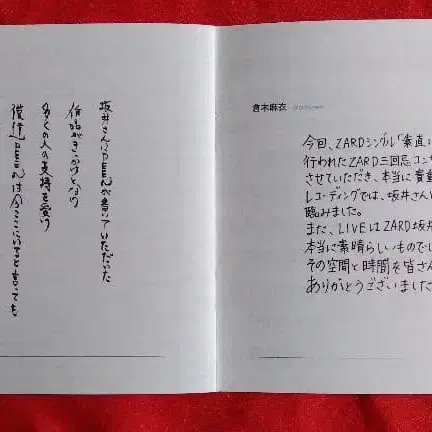 坂井さんにDEENが書いていただいた
作品がきっかけとなり
多くの人の支持を受け
僕達DEENは今ここにいると言っても
倉木麻衣
今回、ZARDシングル「素直に
行われたZARD三回忌コン
させていただき、本当に貴重
レコーディングでは、坂井さん
臨みました。
また、LIVEはZARD坂井
本当に素晴らしいものでし
その空間と時間を皆さん
ありがとうございました